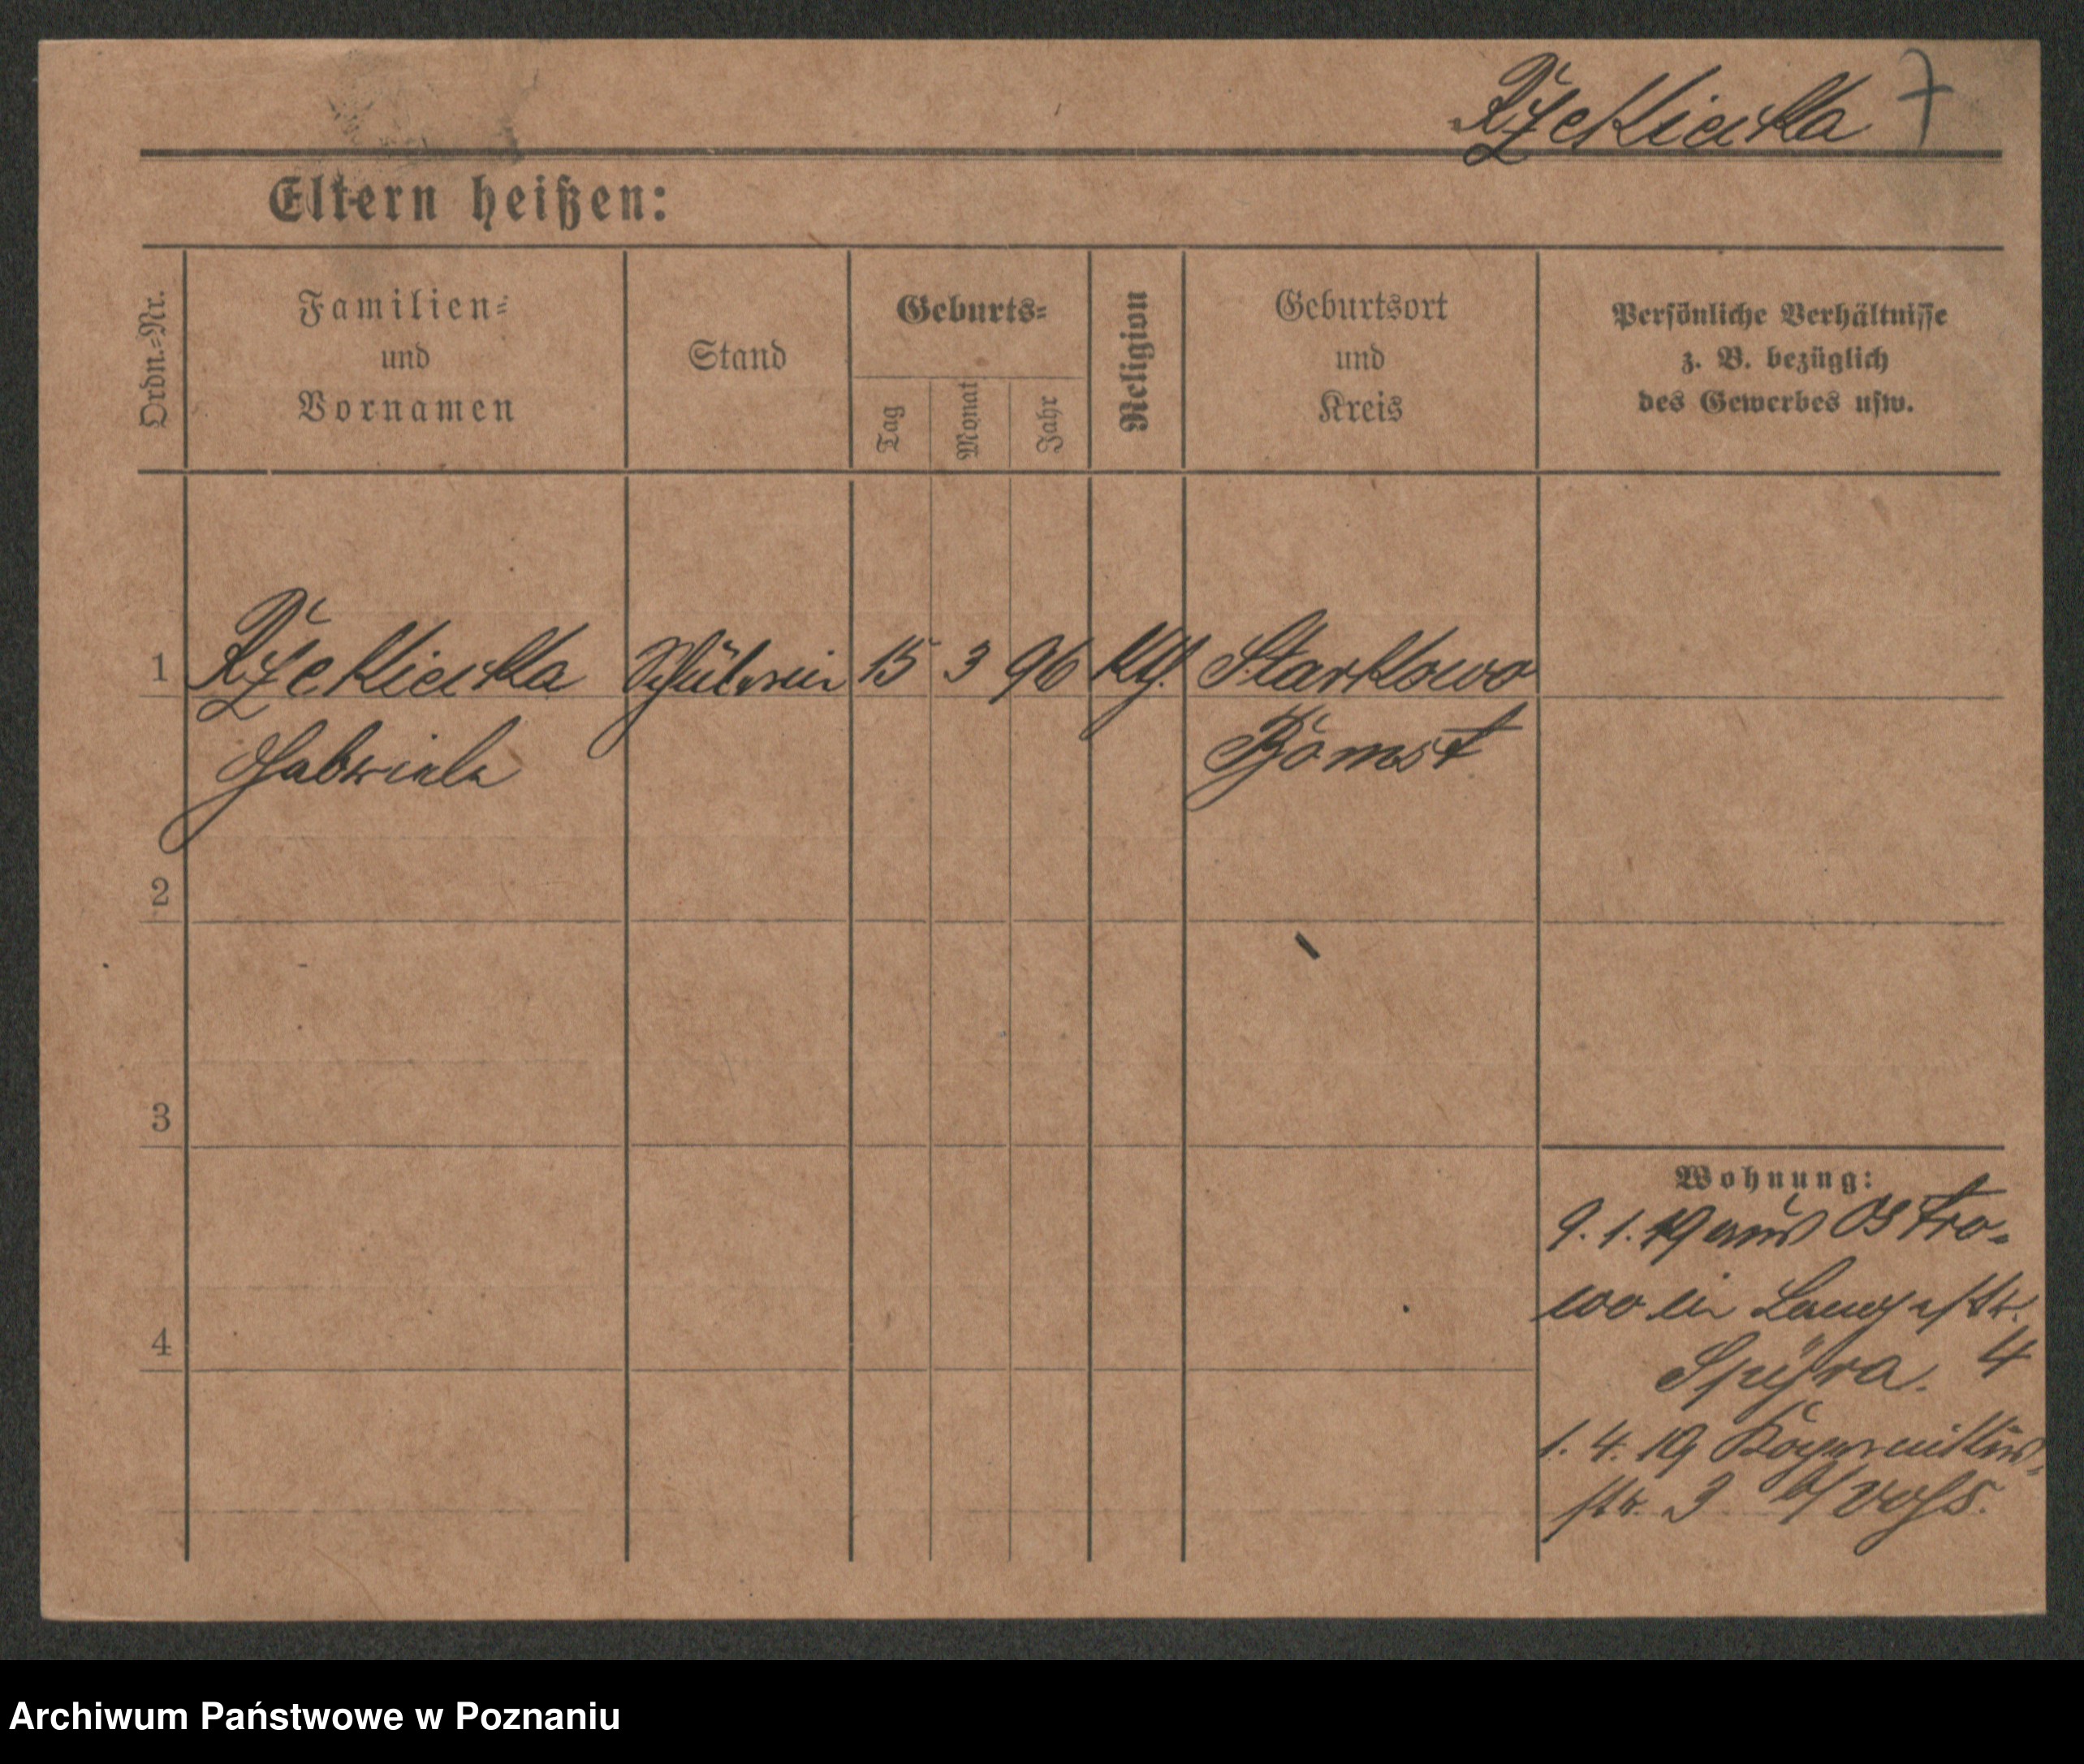 Rzekiecka 7
Eltern heißen:
Ordn.-Nr.
Familien- und Vornamen
Stand
Geburts-
Tag
Monat
Jahr
Religion
Geburtsort und Kreis
Persönliche Verhältnisse z. B. bezüglich des Gewerbes usw.
1 Rzekiecka Schülerin 15 3 96 Kth. Starkowo
Gabriele Bomst
2
3
4
Wohnung:
9. 1. 19 aus Ostro-
wo in Langestr.
4
1. 4. 19
str. 3
Archiwum Państwowe w Poznaniu